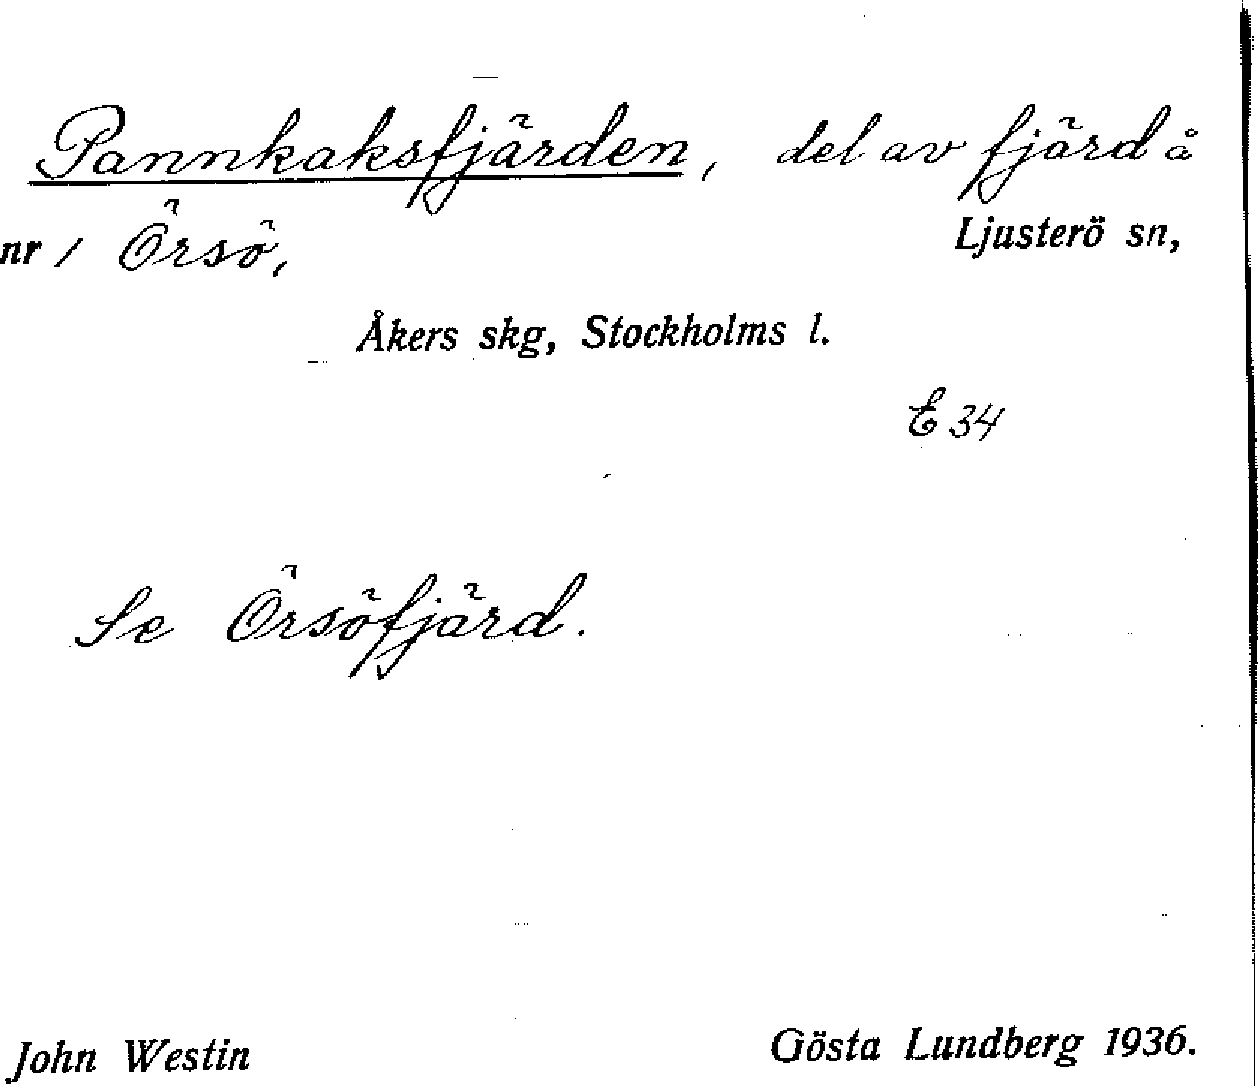 Pannkaksfjärden, del av fjärd å
nr 1 Örsö, Ljusterö sn,
Åkers skg, Stockholms l.
E 34
Se Örsöfjärd.
John Westin Gösta Lundberg 1936.